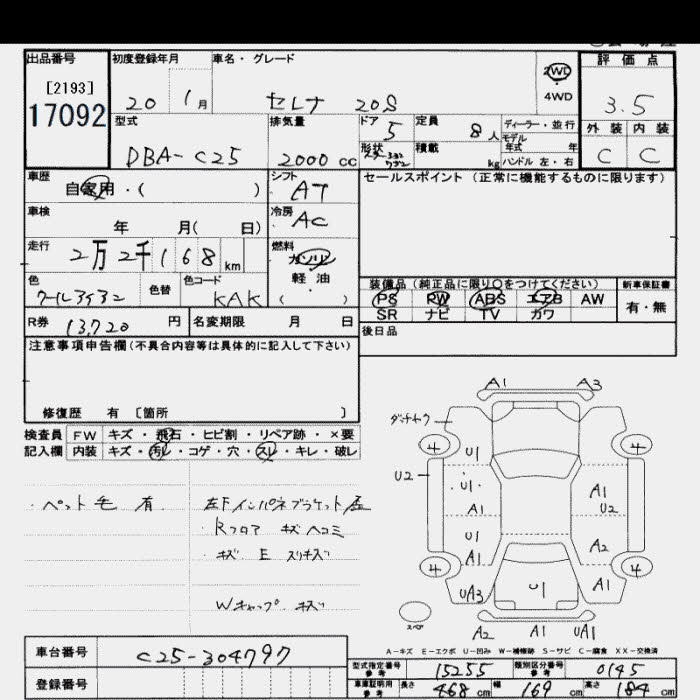 出品番号
[2193]
17092
初度登録年月
20 1月
車名・グレード
セレナ 20S
2WD
4WD
評価点
3.5
外装 内装
C C
型式
DBA-C25
排気量
2000 cc
ドア
5
形状
定員
8人
積載
kg
ディーラー・並行
モデル
年式 年
ハンドル 左・右
車歴
自家用・( )
シフト
AT
セールスポイント(正常に機能するものに限ります)
車検
年 月( 日)
冷房
AC
走行
2万2千168km
燃料
ガソリン
軽・油
( )
色
色替
色コード
KAK
装備品(純正品に限り○をつけてください)
新車保証書
PS PW ABS エアB AW
有・無
SR ナビ TV カワ
R券 13,720 円
名変期限 月 日
後日品
注意事項申告欄(不具合内容等は具体的に記入して下さい)
修復歴 有 [箇所 ]
検査員 FW キズ・飛石・ヒビ割・リペア跡・×要
記入欄 内装 キズ・汚レ・コゲ・穴・スレ・キレ・破レ
・ペット毛 有
左Fインパネブラケット
Rフロア キズ ヘコミ
・キズ E スリキズ
Wキャップ キズ
A1 A3
4 4
U1
U2
U1
A1
A1
U2
U1
A1
A2
4 4
UA3
U1
A1
スペア
A2 A1 UA1
A-キズ E-エクボ U-凹み W-補修跡 S-サビ C-腐食 XX-交換済
車台番号
C25-304797
登録番号
型式指定番号
参考
15255
類別区分番号
参考
0145
車庫証明用
参考
長さ 468 cm 幅 169 cm 高さ 184 cm